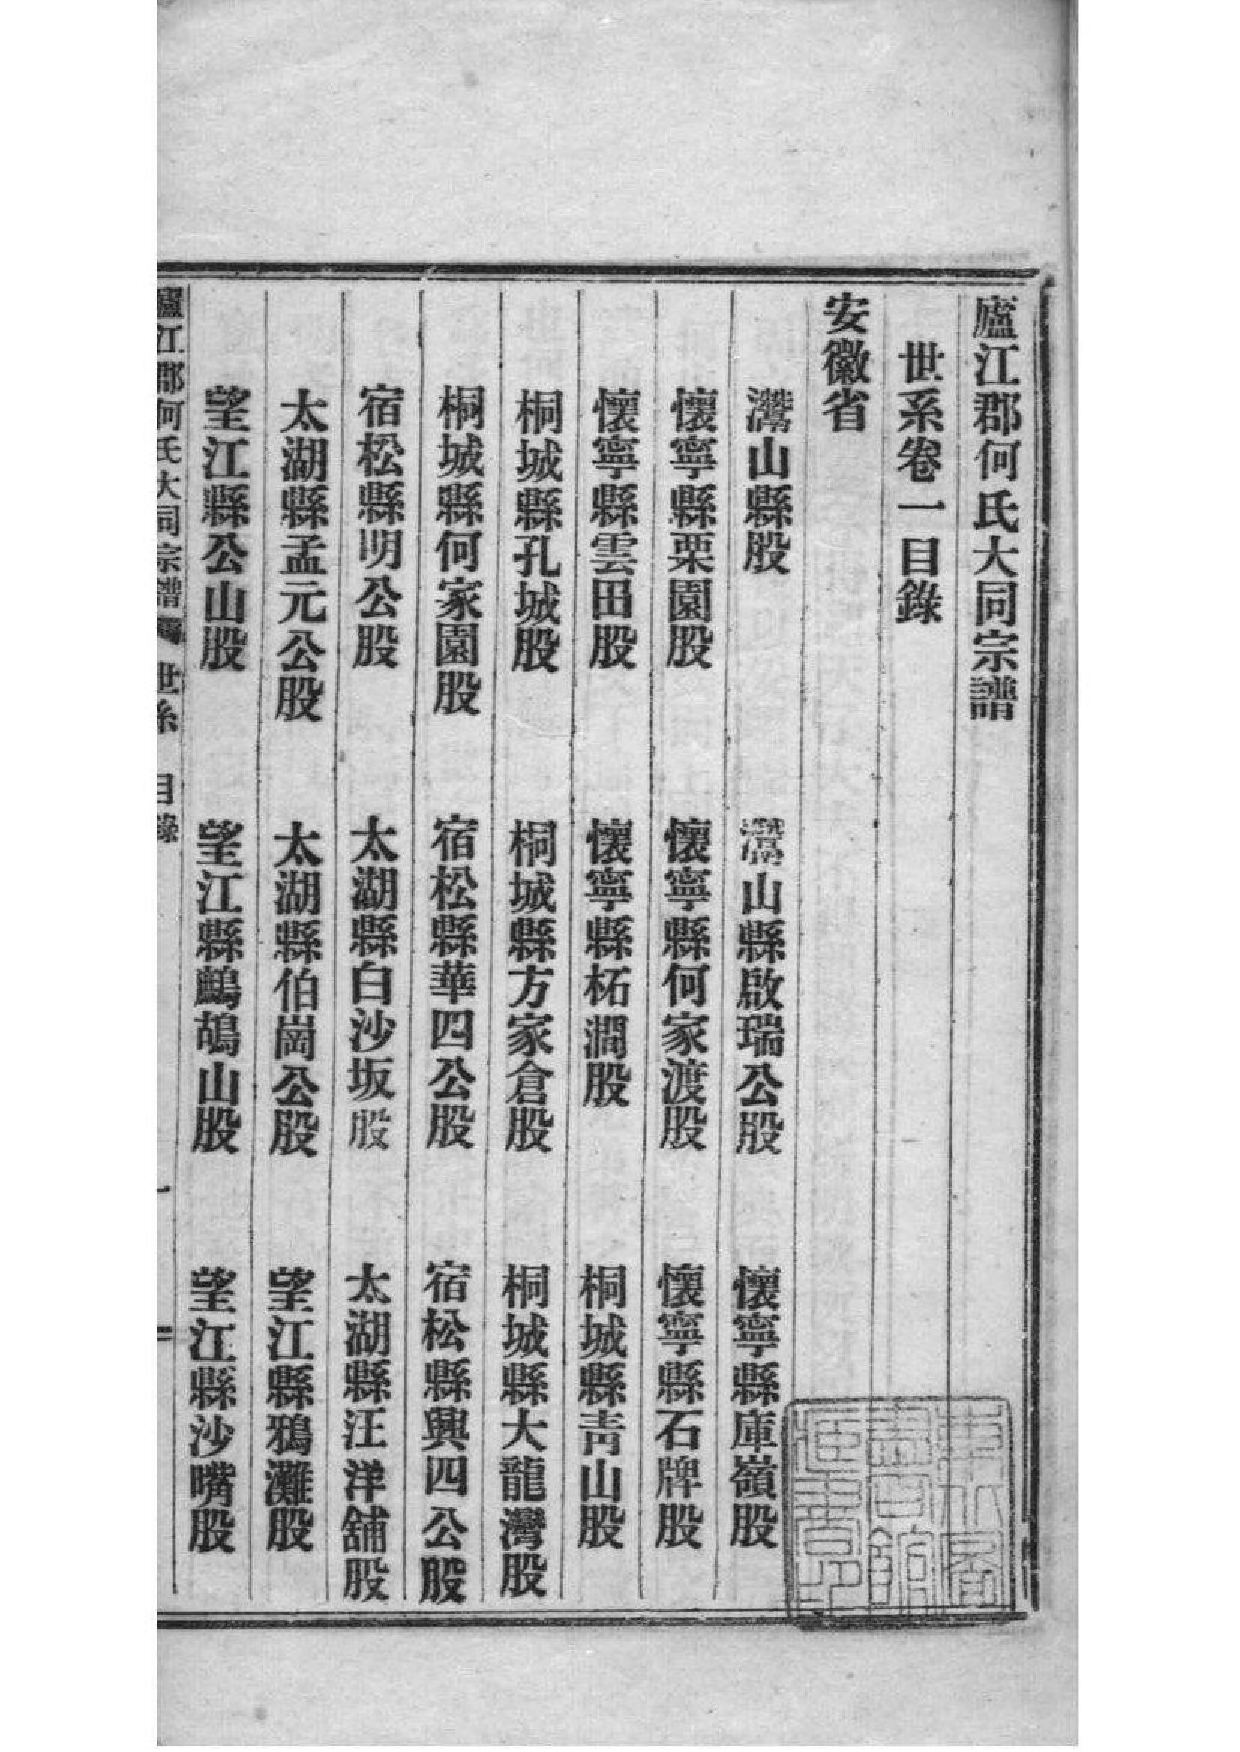 廬江郡何氏大同宗譜
世系卷一目錄
安徽省
灊山縣股 灊山縣啟瑞公股 懷寧縣庫嶺股
懷寧縣栗園股 懷寧縣何家渡股 懷寧縣石牌股
懷寧縣雲田股 懷寧縣柘澗股 桐城縣靑山股
桐城縣孔城股 桐城縣方家倉股 桐城縣大龍灣股
桐城縣何家園股 宿松縣華四公股 宿松縣興四公股
宿松縣明公股 太湖縣白沙坂股 太湖縣汪洋舖股
太湖縣孟元公股 太湖縣伯崗公股 望江縣鴉灘股
望江縣公山股 望江縣鷓鴣山股 望江縣沙嘴股
廬江郡何氏大同宗譜 世系 目錄